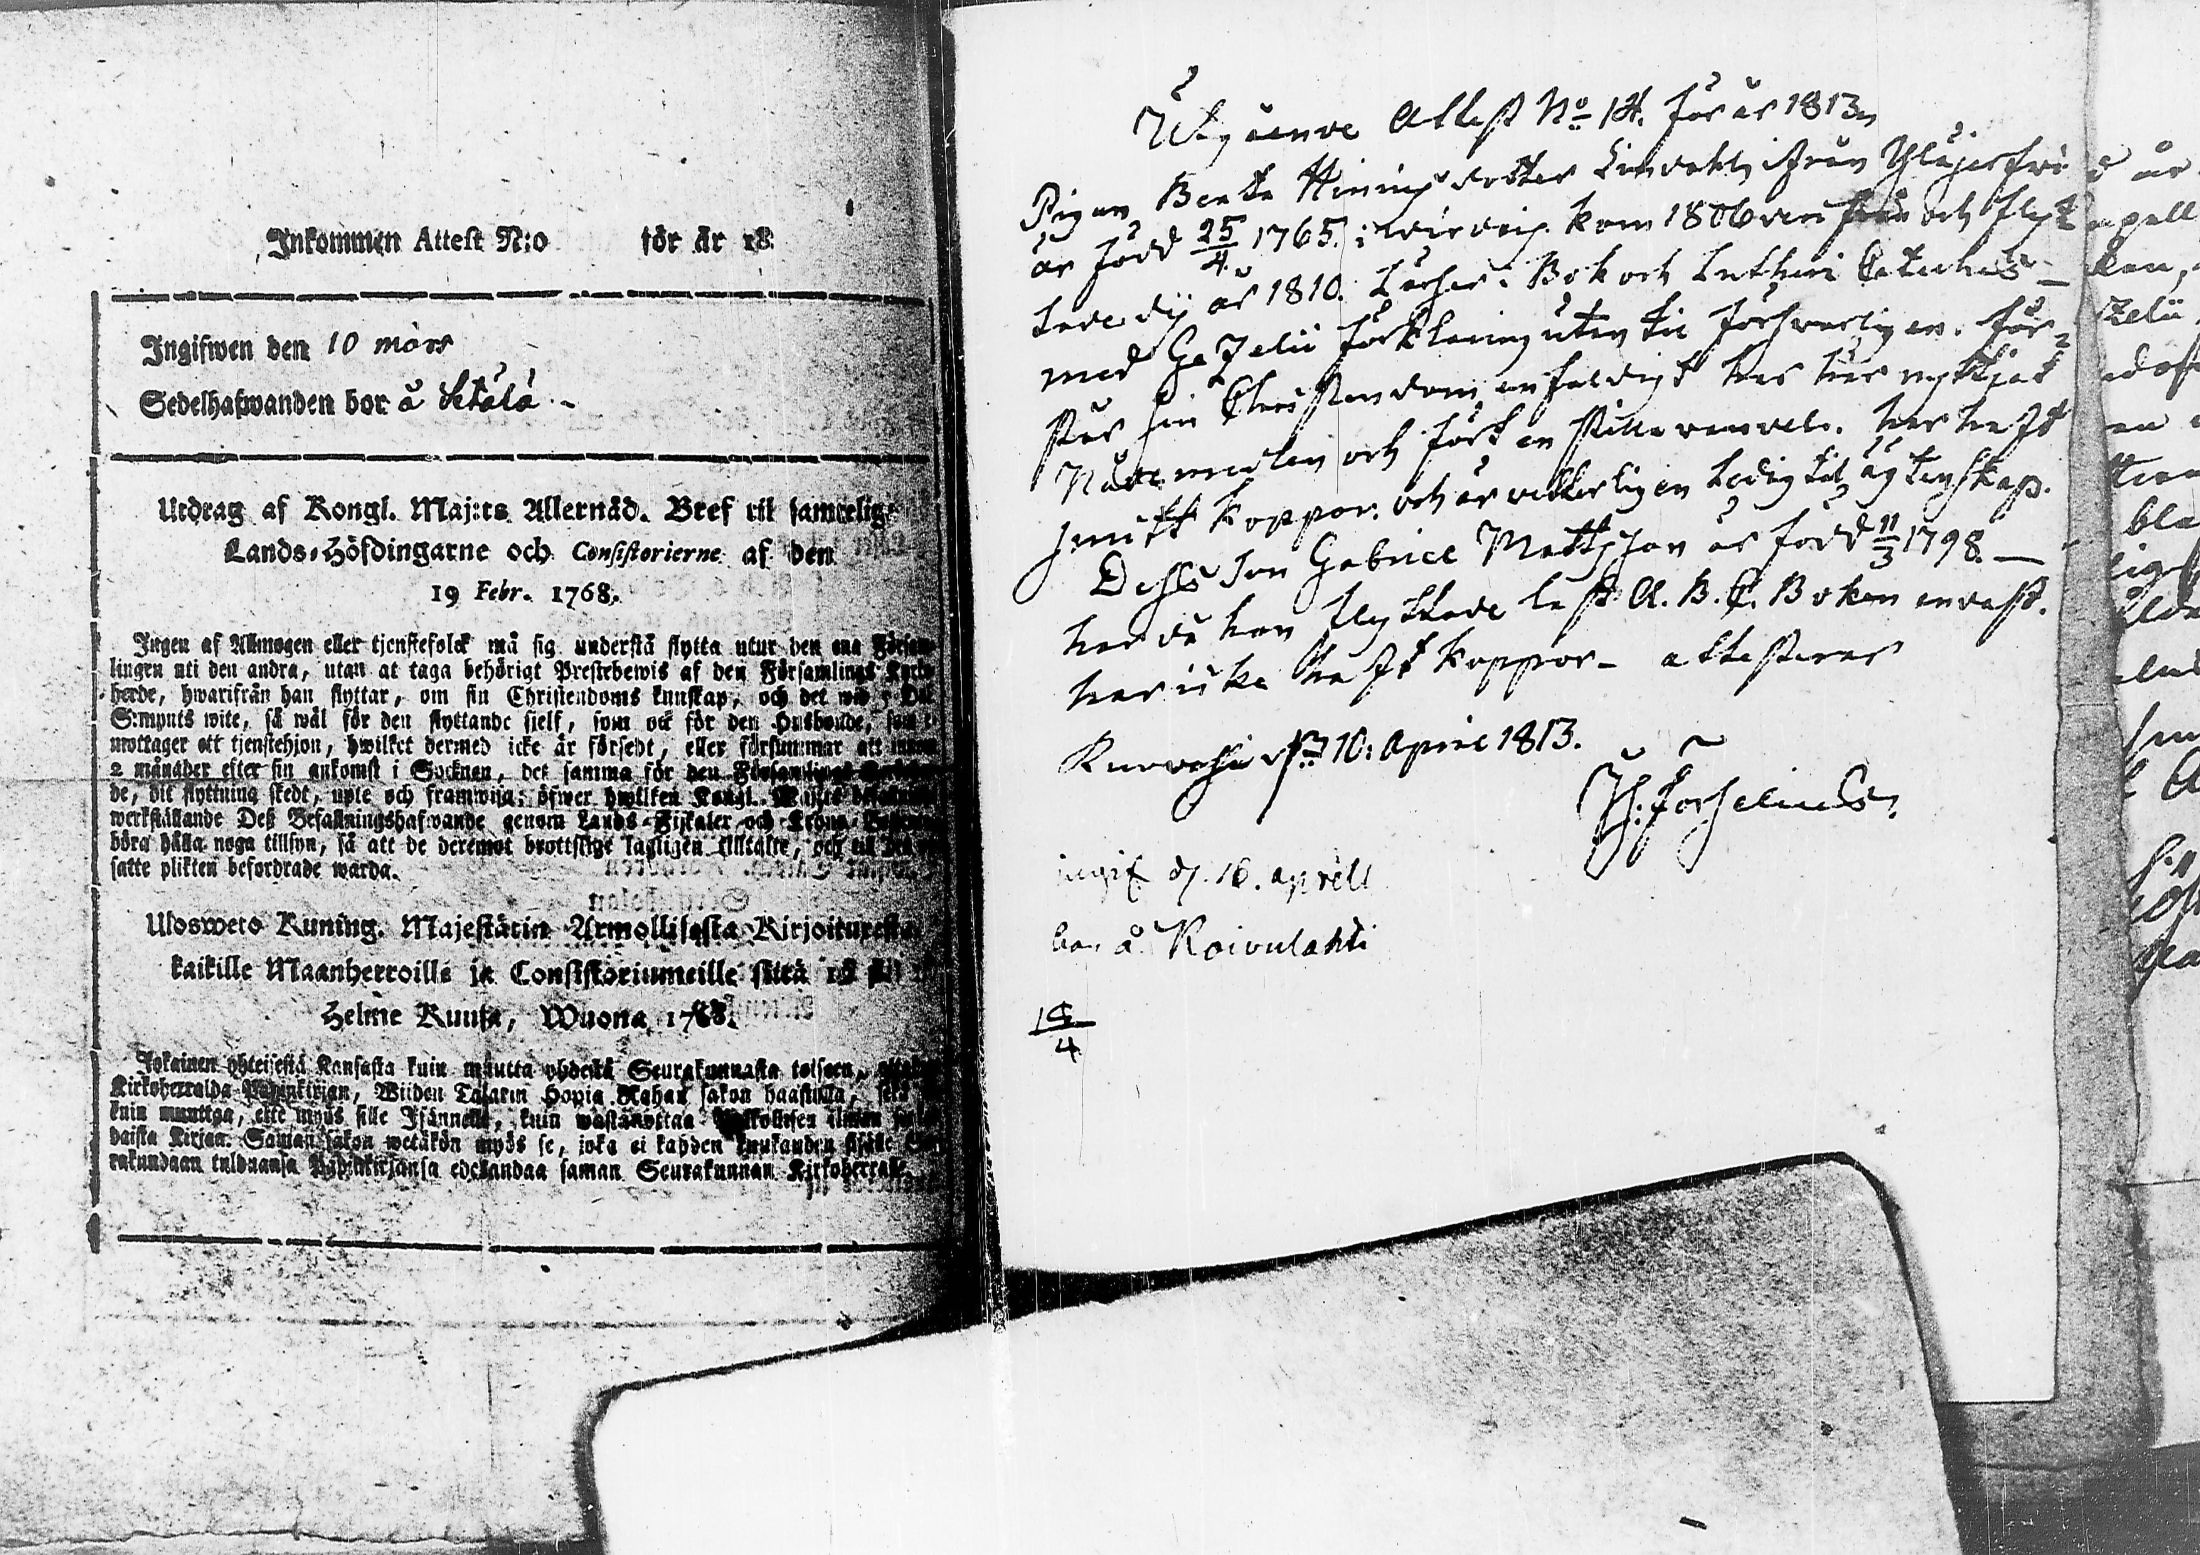 Inkommen Attest N:o för år 18
Ingifwen den 10 mars
Sedelhafwanden bor å Sétälä
Utdrag af Kongl. Maj:ts Allernåd. Bref til samtelige
Lands-Höfdingarne och Consistorierne af den
19 Febr. 1768.
Ingen af Allmogen eller tjenstefolck må sig understå flytta utur den ena Försam-
lingen uti den andra, utan at taga behörigt Prestebewis af den Församlings Kyrko-
herde, hwarifrån han flyttar, om sin Christendoms kunskap, och det wid 5 Dal.
S:mynts wite, så wäl för den flyttande sielf, som ock för den Husbonde, som
mottager ett tjenstehjon, hwilket dermed icke är försedt, eller försummar att innom
2 månader efter sin ankomst i Socknen, det samma för den Församlings
de, dit flyttning skedt, upte och framwisa; öfwer hwilken Kongl. Maj:ts
werkställande Deß Befallningshafwande genom Lands-Fiskaler och Krono-
böra hålla noga tillsyn, så att de deremot brottslige lagligen tilltalte, och till
satte plikten befordrade warda.
Ulosweto Kuning. Majestätin Armollisesta Kirjoituresta
kaikille Maanherroille ja Consistoriumeille siitä 19 p:
Helme Kuusa, Wuona 1768.
Jokainen yhteisestä Kansasta kuin muutta yhdestä Seurakunnasta toiseen,
Kirkoherralda Papinkirjan, Wiiden Talarin Hopia Rahan sakon haastolla, sekä
kuin muuttaa, että myös sille Isännelle, kuin wastanottaa Palkollisen ilman
daista Kirjan. Saman sakon wetäkön myös se, joka ei kahden kuukauden sisälle
rakundaan tulduansa Papinkirjansa edesandaa saman Seurakunnan Kirkoherralle.
Utgående Attest No 14. för år 1813
Pigan Beata Hinrichsdotter Lindahl ifrån
är född 25/4 1765. i kom 1806 och flyt
år 1810. Läser i Bok och Lutheri Cateches
med Gezelii förklaring utan til försvarligen. för-
står sin Christendom enfaldigt har här nyttjat
Nådemedlen och fört en stilla vandel. har haft
smitt koppor. och är vetterligen ledig til ägtenskap.
Dess son Gabriel Mattsson är född 11/3 1798. —
har då han flyttade läst A. B. C. Boken endast.
har icke haft koppor — attesteras
d. 10: April 1813.
H: Forselius.
ingif. d. 16. aprill
bor å Koivulahti
16/4